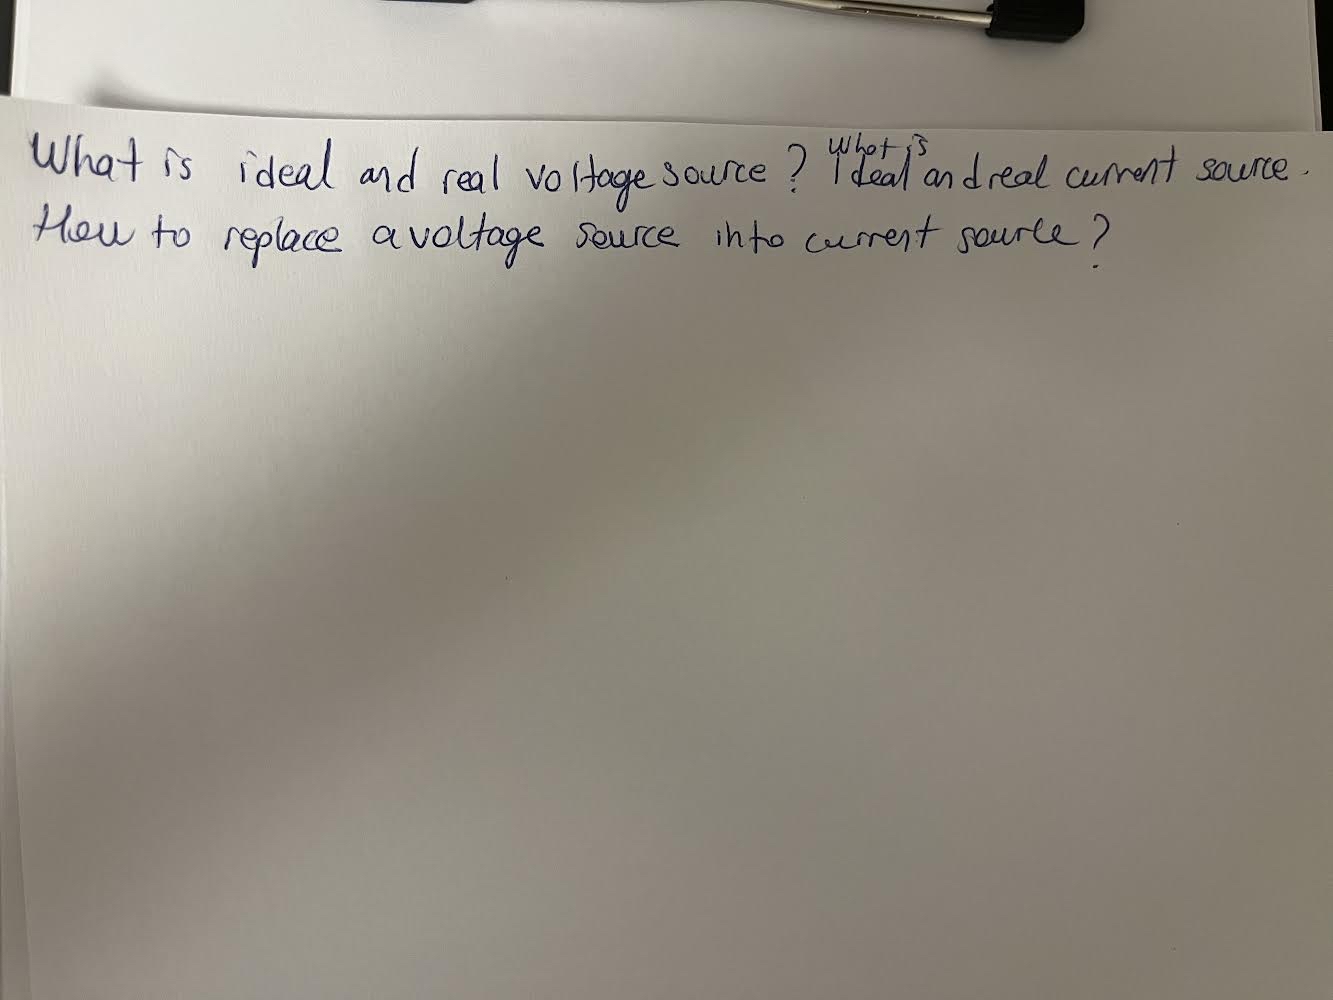 What is ideal and real voltage source? What is Ideal and real current source.
How to replace a voltage source into current source?